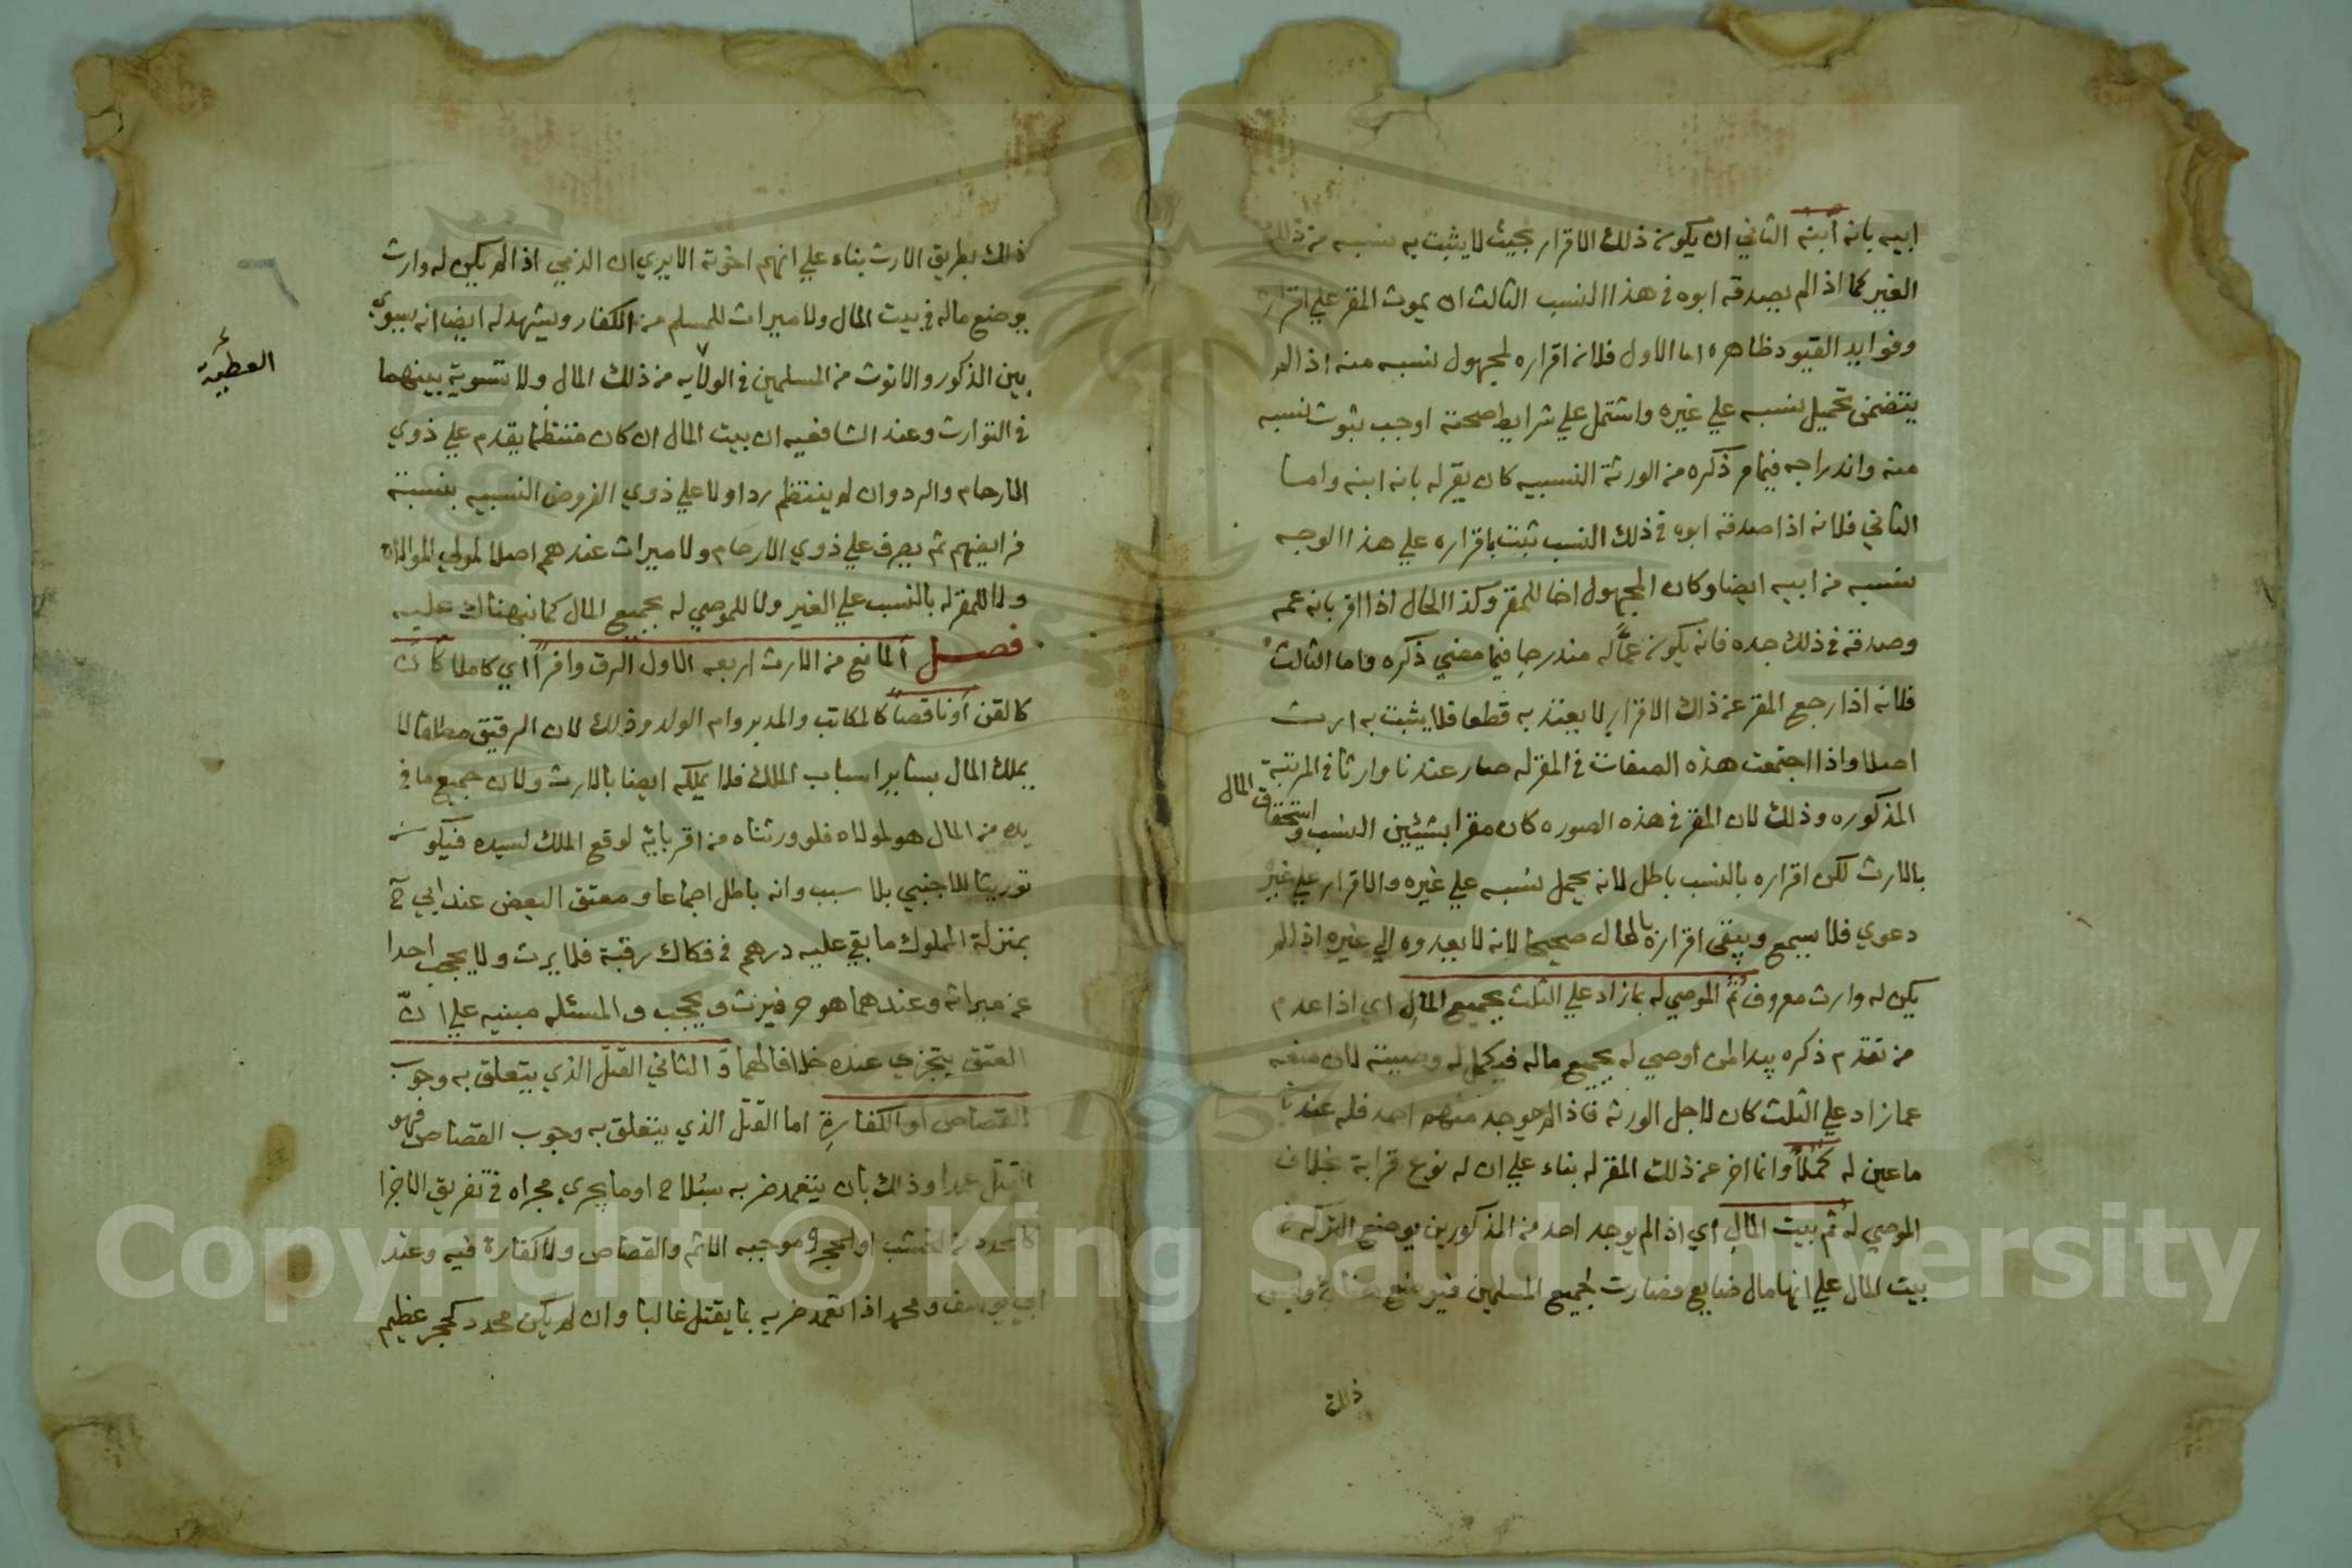 ابيه بانه ابنه الثاني ان يكون ذلك الاقرار بحيث لا يثبت به نسبه من ذلك
الغير كما اذا لم يصدقه ابوه في هذا النسب الثالث ان يموت المقر علي اقراره
وفوايد القيود ظاهره اما الاول فلانه اقراره لمجهول نسبه منه اذا لم
يتضمن تحميل نسبه علي غيره واشتمل علي شرايط صحته اوجب ثبوت نسبه
منه واندراجه فيما مر ذكره من الورثة النسبيه كان يقر له بانه ابنه واما
الثاني فلانه اذا صدقه ابوه في ذلك النسب ثبت باقراره علي هذا الوجه
نسبه من ابيه ايضا وكان المجهول اخا للمقر وكذا الحال اذا اقر بانه عمه
وصدقه في ذلك جده فانه يكون عمًا له مندرجا فيما مضي ذكره واما الثالث
فلانه اذا رجع المقر عن ذلك الاقرار لا يعتد به قطعا فلا يثبت به ارث
اصلا واذا اجتمعت هذه الصفات في المقر له صار عندنا وارثا في المرتبة
المذكوره وذلك لان المقر في هذه الصوره كان مقرا بشيئين النسب واستحقاق المال
بالارث لكن اقراره بالنسب باطل لانه يحمل نسبه علي غيره والاقرار علي غير
دعوي فلا يسمع ويبقى اقراره بالمال صحيحا لانه لا يعدوه الي غيره اذا لم
يكن له وارث معروف ثُمَّ الموصي له بما زاد علي الثلث بجميع المال اي اذا عدم
من تقدم ذكره يبدا لمن اوصي له بجميع ماله فيكمل له وصيته لان منعه
عما زاد علي الثلث كان لاجل الورثة فاذا لم يوجد منهم احد فله عندنا
ما عين له كملاً وانما اخر عن ذلك المقر له بناء علي ان له نوع قرابة بخلاف
الموصي له ثم بيت المال اي اذا لم يوجد احد من المذكورين يوضع التركه في
بيت المال علي انها مال ضايع فصارت لجميع المسلمين فيوضع
ذلك
ذلك بطريق الارث بناء علي انهم اخوته الا يري ان الذمي اذا لم يكن له وارث
يوضع ماله في بيت المال ولا ميراث للمسلم من الكفار ويشهد له ايضا انه يسوي
بين الذكور والانوث من المسلمين في الولايه من ذلك المال ولا تسوية بينهما
في التوارث وعند الشافعيه ان بيت المال ان كان منتظما يقدم علي ذوي
الارحام والرد وان لم ينتظم رد اولا علي ذوي الفروض النسبيه بنسبة
فرايضهم ثم يصرف علي ذوي الارحام ولا ميراث عندهم اصلا لمولي الموالاه
ولا للمقر له بالنسب علي الغير ولا للموصي له بجميع المال كما نبهناك عليه
فصل المانع من الارث اربعه الاول الرق وافراً اي كاملا كان
كالقن أو ناقصاً كالمكاتب والمدبر وام الولد وذلك لان الرقيق مطلقا لا
يملك المال بسائر اسباب الملك فلا يملكه ايضا بالارث ولان جميع ما في
يده من المال هو لمولاه فلو ورثناه من اقربائه لوقع الملك لسيده فيكون
توريثا للاجنبي بلا سبب وانه باطل اجماعا ومعتق البعض عند ابي ح
بمنزلة المملوك ما بقي عليه درهم في فكاك رقبة فلا يرث ولا يحجب احدا
عن ميراثه وعندهما هو حر فيرث ويحجب والمسئله مبنيه علي انّ
العتق يتجزي عنده خلافا لهما وَ الثاني القتل الذي يتعلق به وجوب
القصاص او الكفارة اما القتل الذي يتعلق به وجوب القصاص فهو
القتل عمدا وذلك بان يتعمد ضربه بسلاح او ما يجري مجراه في تفريق الاجزا
كالمحدد من الخشب او الحجر وموجبه الاثم والقصاص ولا كفارة فيه وعند
ابي يوسف ومحمد اذا تعمد ضربه بما يقتل غالبا وان لم يكن محدد كحجر عظيم
Copyright © King Saud University
1957